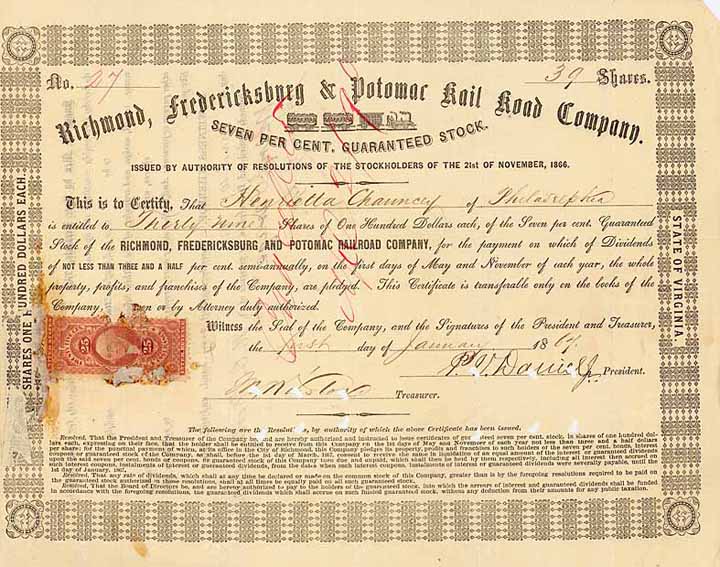 No. 27 39 Shares.
Richmond, Fredericksburg & Potomac Rail Road Company.
SEVEN PER CENT. GUARANTEED STOCK.
ISSUED BY AUTHORITY OF RESOLUTIONS OF THE STOCKHOLDERS OF THE 21st OF NOVEMBER, 1866.
This is to Certify, That Henrietta Chauncey of Philadelphia
is entitled to Thirty Nine Shares of One Hundred Dollars each, of the Seven per cent. Guaranteed
Stock of the RICHMOND, FREDERICKSBURG AND POTOMAC RAILROAD COMPANY, for the payment on which of Dividends
of NOT LESS THAN THREE AND A HALF per cent. semi-annually, on the first days of May and November of each year, the whole
property, profits, and franchises of the Company, are pledged. This Certificate is transferable only on the books of the
Company, or by Attorney duly authorized.
Witness the Seal of the Company, and the Signatures of the President and Treasurer,
the first day of January 1867.
P. V. Daniel Jr. President.
Treasurer.
SHARES ONE HUNDRED DOLLARS EACH.
STATE OF VIRGINIA.
25 25
The following are the Resolutions, by authority of which the above Certificate has been issued.
Resolved, That the President and Treasurer of the Company be, and are hereby authorized and instructed to issue certificates of guaranteed seven per cent. stock, in shares of one hundred dol-
lars each, expressing on their face, that the holder shall be entitled to receive from this Company on the 1st days of May and November of each year not less than three and a half dollars
per share; for the punctual payment of which, at its office in the City of Richmond, this Company pledges its property, profits and franchises to such holders of the seven per cent. bonds, interest
coupons or guaranteed stock of the Company, as shall, before the 1st day of March, 1867, consent to receive the same in liquidation of an equal amount of the interest or guaranteed dividends
upon the said seven per cent. bonds or coupons, or guaranteed stock of this Company then due and unpaid, which shall then be held by them respectively, including all interest then accrued on
such interest coupons, instalments of interest or guaranteed dividends, from the dates when such interest coupons, instalments of interest or guaranteed dividends were severally payable, until the
1st day of January, 1867.
Resolved, That any rate of dividends, which shall at any time be declared or made on the common stock of this Company, greater than is by the foregoing resolutions required to be paid on
the guaranteed stock authorized in those resolutions, shall at all times be equally paid on all such guaranteed stock.
Resolved, That the Board of Directors be, and are hereby authorized to pay to the holders of the guaranteed stock, into which the arrears of interest and guaranteed dividends shall be funded
in accordance with the foregoing resolutions, the guaranteed dividends which shall accrue on such funded guaranteed stock, without any deduction from their amounts for any public taxation.